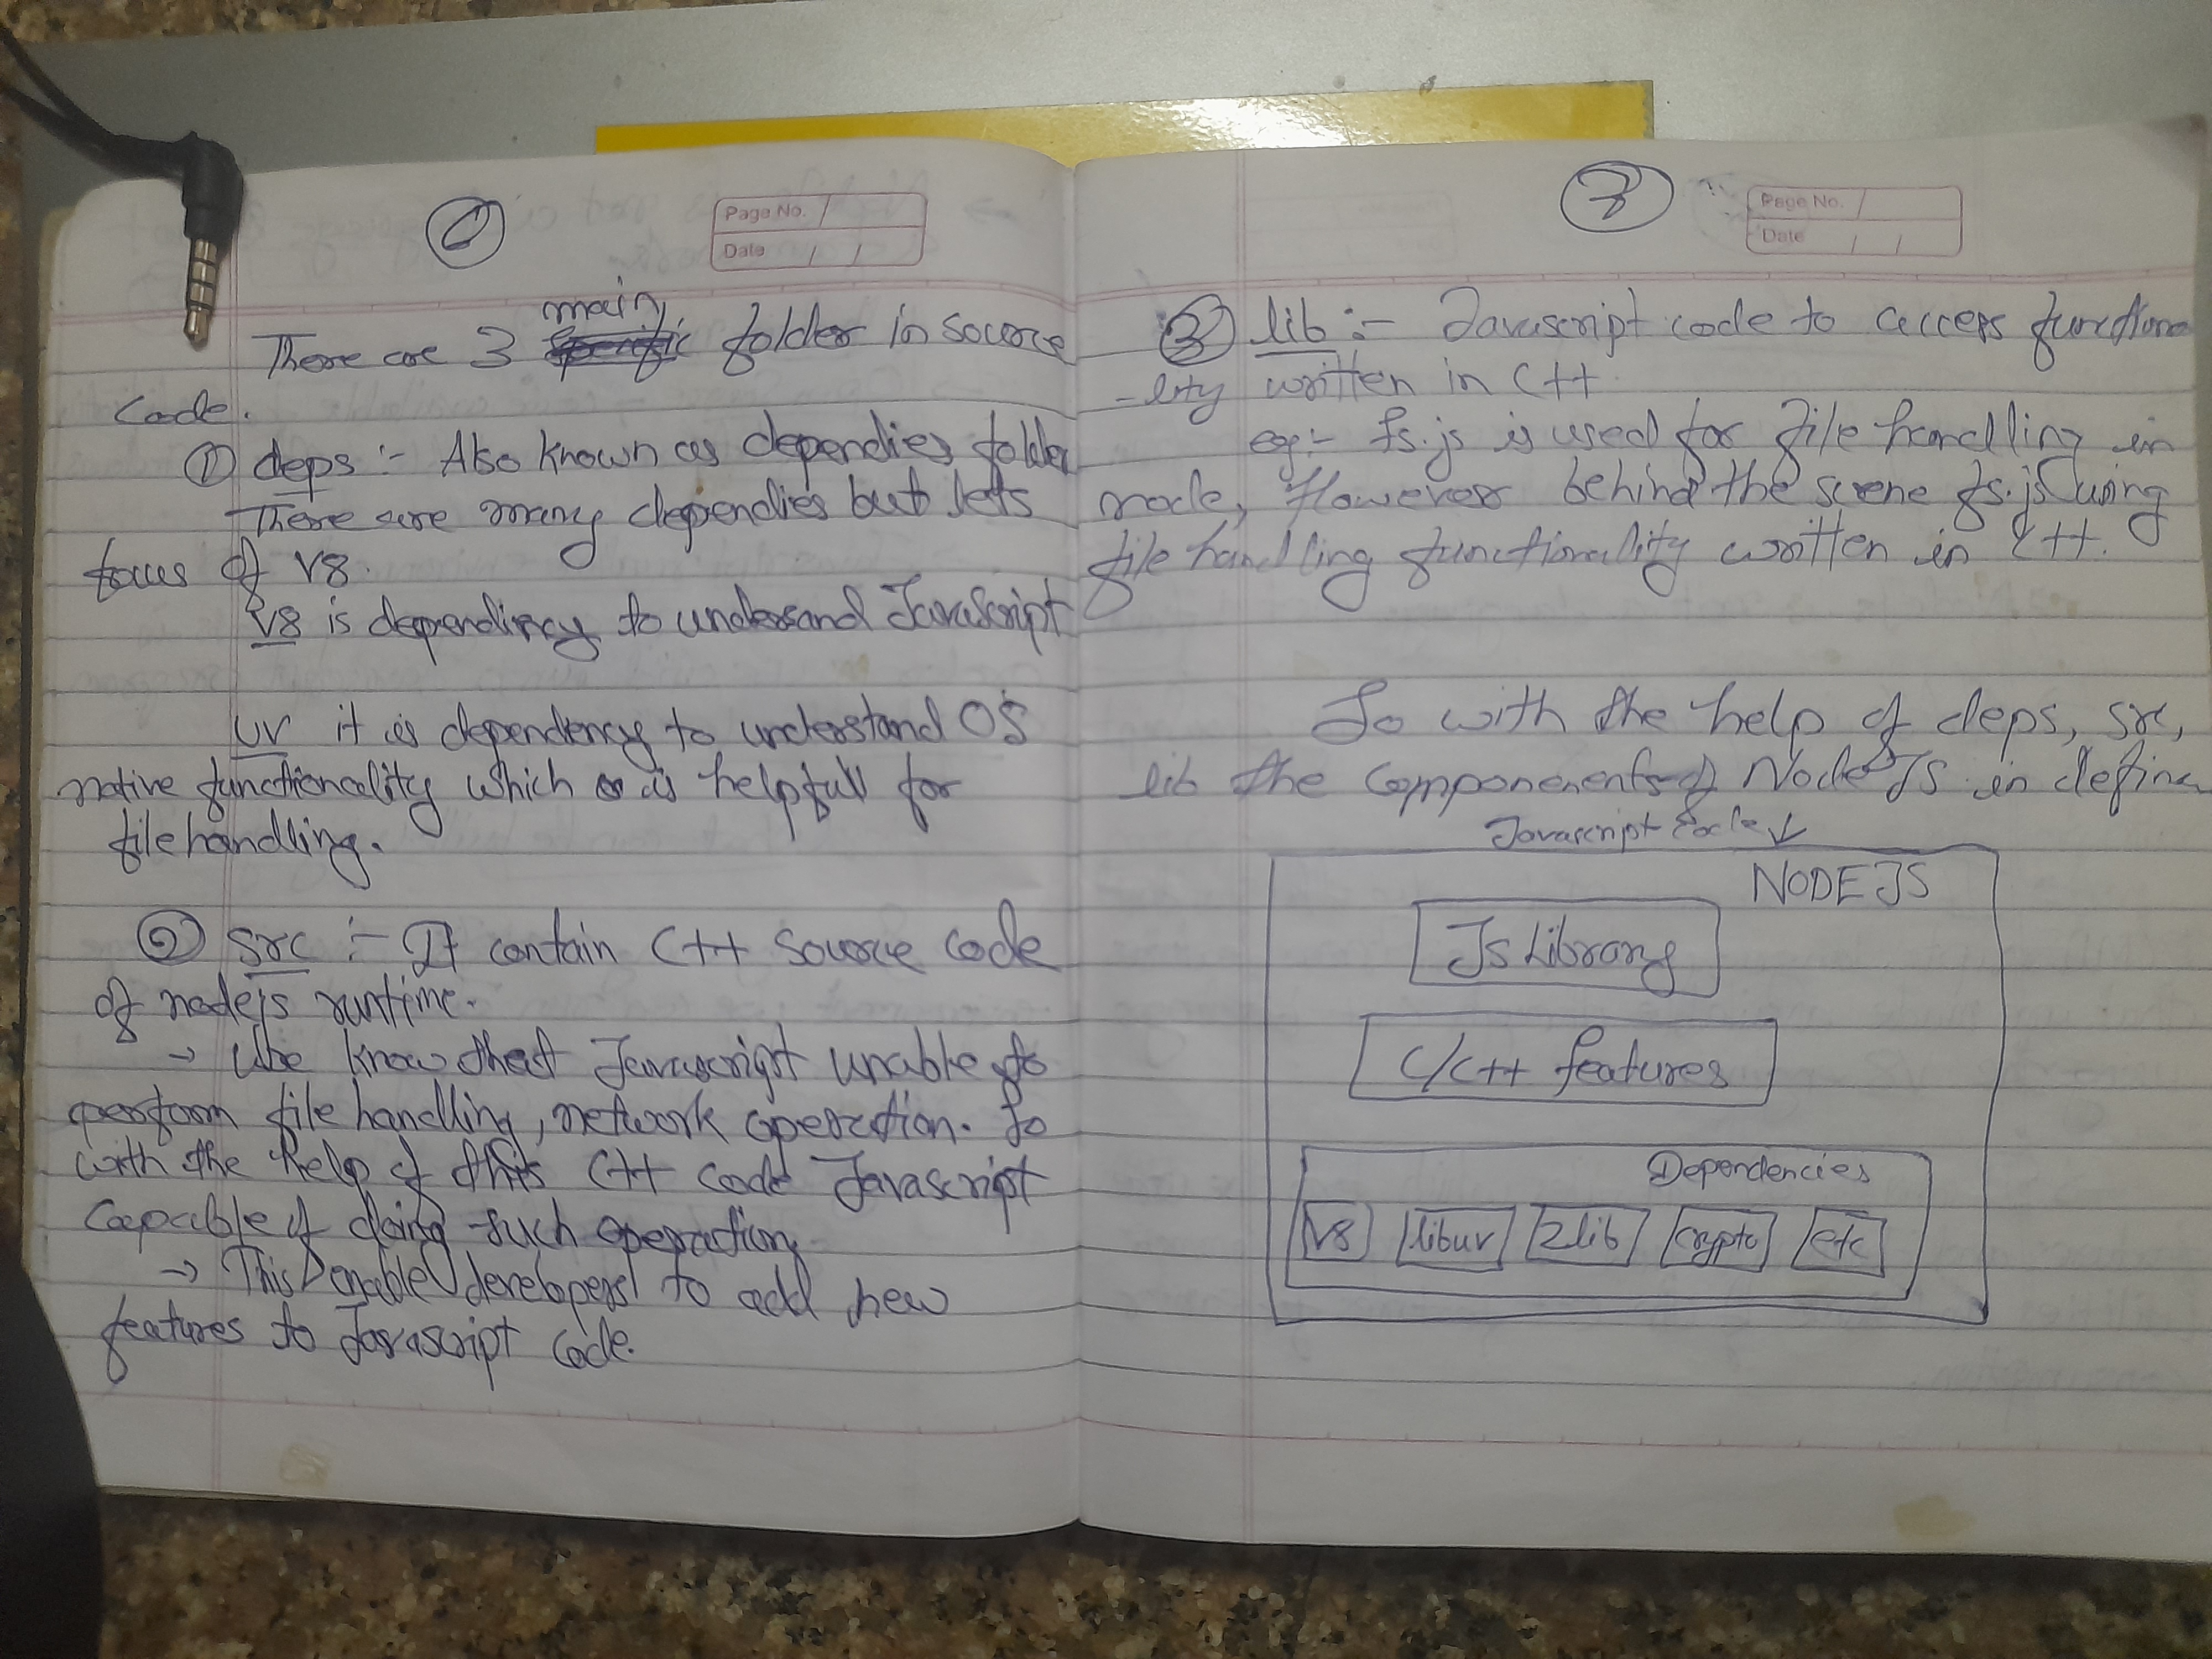 6
Page No.
Date
There are 3 main folder in source
code.
① deps :- Also known as dependies folder
There are many dependies but lets
focus of V8.
V8 is dependincy to undersand JavaScript
UV it is dependency to understand OS
native functionality which is helpfull for
file handling.
② src :- It contain C++ source code
of nodejs runtime.
→ We know that Javascript unable to
perform file handling, network operation. So
with the help of this C++ code Javascript
capable of doing such operation
→ This enable developers to add new
features to Javascript code.
7
Page No.
Date
③ lib :- Javascript code to access functiona
-lity written in C++
eg:- fs.js is used for file handling in
node, However behind the scene fs.js using
file handling functionality written in C++.
So with the help of deps, src,
lib the componenents of Node JS in define
Javascript Code ↓
NODE JS
Js Library
C/C++ features
Dependencies
V8 libuv zlib crypto etc